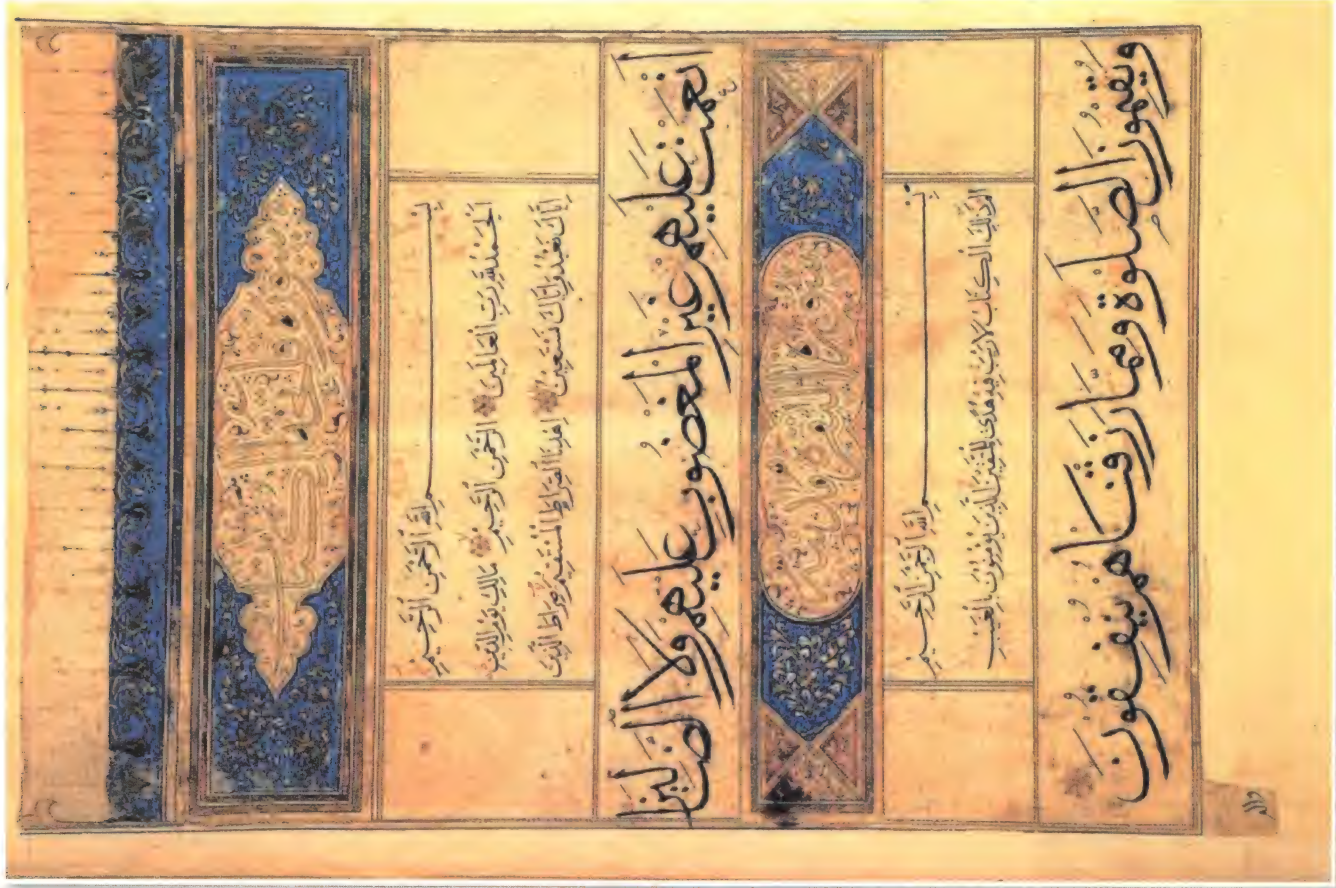 بِسْمِ اللَّهِ الرَّحْمَنِ الرَّحِيمِ
الْحَمْدُ لِلَّهِ رَبِّ الْعَالَمِينَ الرَّحْمَنِ الرَّحِيمِ مَالِكِ يَوْمِ الدِّينِ
إِيَّاكَ نَعْبُدُ وَإِيَّاكَ نَسْتَعِينُ اهْدِنَا الصِّرَاطَ الْمُسْتَقِيمَ صِرَاطَ الَّذِينَ
أَنْعَمْتَ عَلَيْهِمْ غَيْرِ الْمَغْضُوبِ عَلَيْهِمْ وَلَا الضَّالِّينَ
بِسْمِ اللَّهِ الرَّحْمَنِ الرَّحِيمِ
الم ذَلِكَ الْكِتَابُ لَا رَيْبَ فِيهِ هُدًى لِلْمُتَّقِينَ الَّذِينَ يُؤْمِنُونَ بِالْغَيْبِ
وَيُقِيمُونَ الصَّلَوةَ وَمِمَّا رَزَقْنَاهُمْ يُنْفِقُونَ